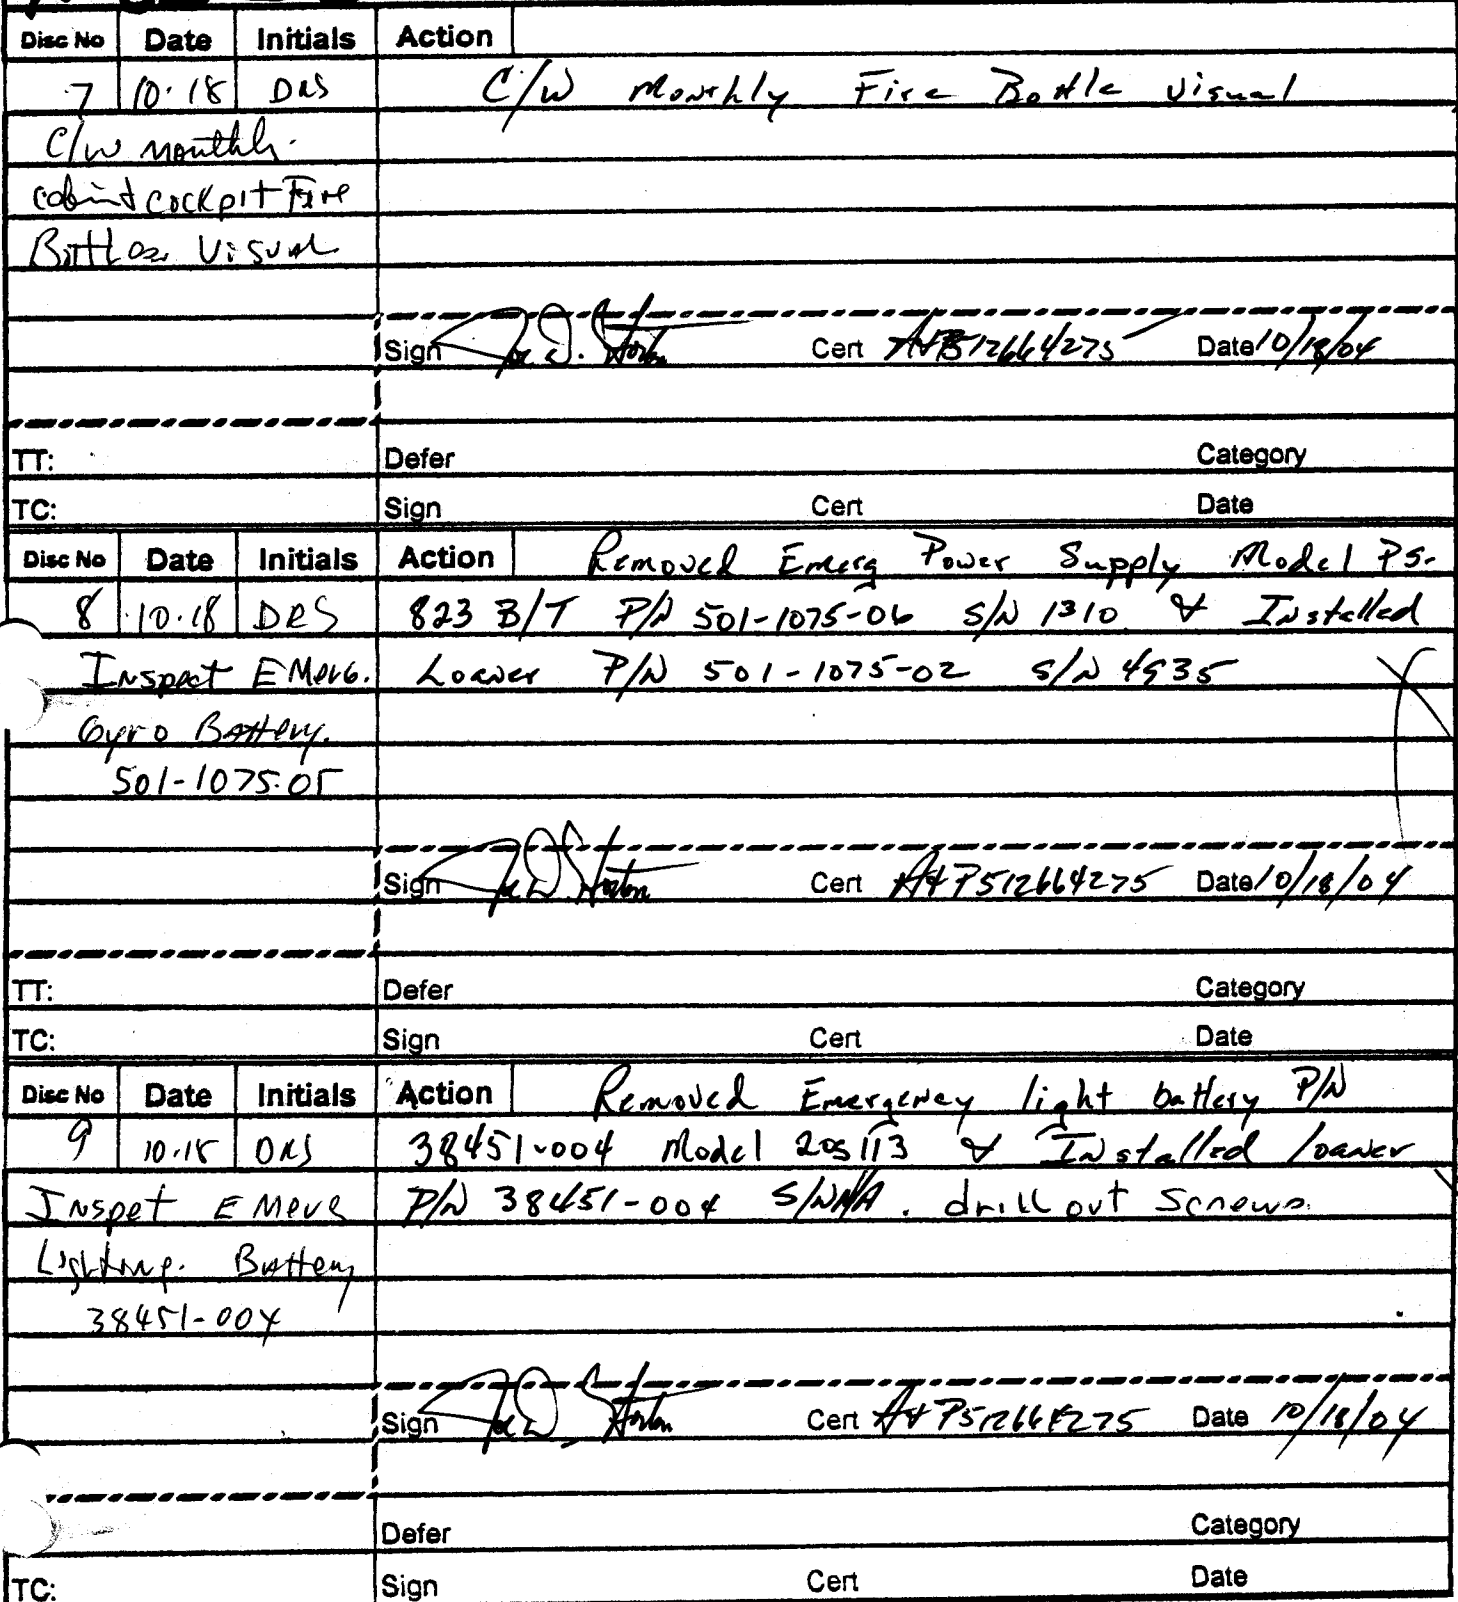 Disc No Date Initials Action
7 10.18 DRS C/W Monthly Fire Bottle Visual
C/W Monthly
cabin & cockpit Fire
Bottles Visual
Sign Cert A&P512664275 Date 10/18/04
TT: Defer Category
TC: Sign Cert Date
Disc No Date Initials Action Removed Emerg Power Supply Model PS-
8 10.18 DRS 823 B/T P/N 501-1075-06 S/N 1310 & Installed
Inspect EMerG. Loaner P/N 501-1075-02 S/N 4935
Gyro Battery.
501-1075.05
Sign Cert A&P512664275 Date 10/18/04
TT: Defer Category
TC: Sign Cert Date
Disc No Date Initials Action Removed Emergency light battery P/N
9 10.18 DRS 38451-004 Model 205113 & Installed loaner
Inspet EMerG P/N 38451-004 S/N N/A. drill out Screws.
Lighting. Battery
38451-004
Sign Cert A&P512664275 Date 10/18/04
Defer Category
TC: Sign Cert Date